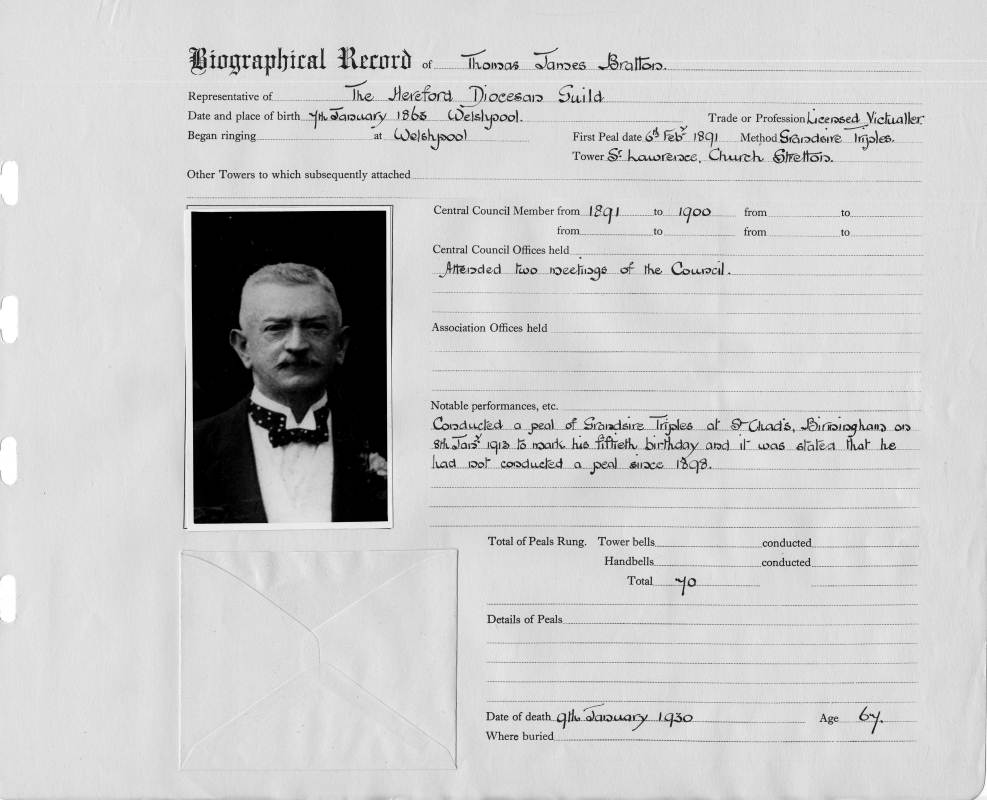 Biographical Record of Thomas James Bratton.
Representative of The Hereford Diocesan Guild
Date and place of birth 7th January 1863 Welshpool. Trade or Profession Licensed Victualler.
Began ringing at Welshpool First Peal date 6th Feby 1891 Method Grandsire Triples.
Tower St Lawrence, Church Stretton.
Other Towers to which subsequently attached
Central Council Member from 1891 to 1900 from to
from to from to
Central Council Offices held
Attended two meetings of the Council.
Association Offices held
Notable performances, etc.
Conducted a peal of Grandsire Triples at St Chad's, Birmingham on
8th Jany 1913 to mark his fiftieth birthday and it was stated that he
had not conducted a peal since 1898.
Total of Peals Rung. Tower bells conducted
Handbells conducted
Total 70
Details of Peals
Date of death 9th January 1930 Age 67.
Where buried